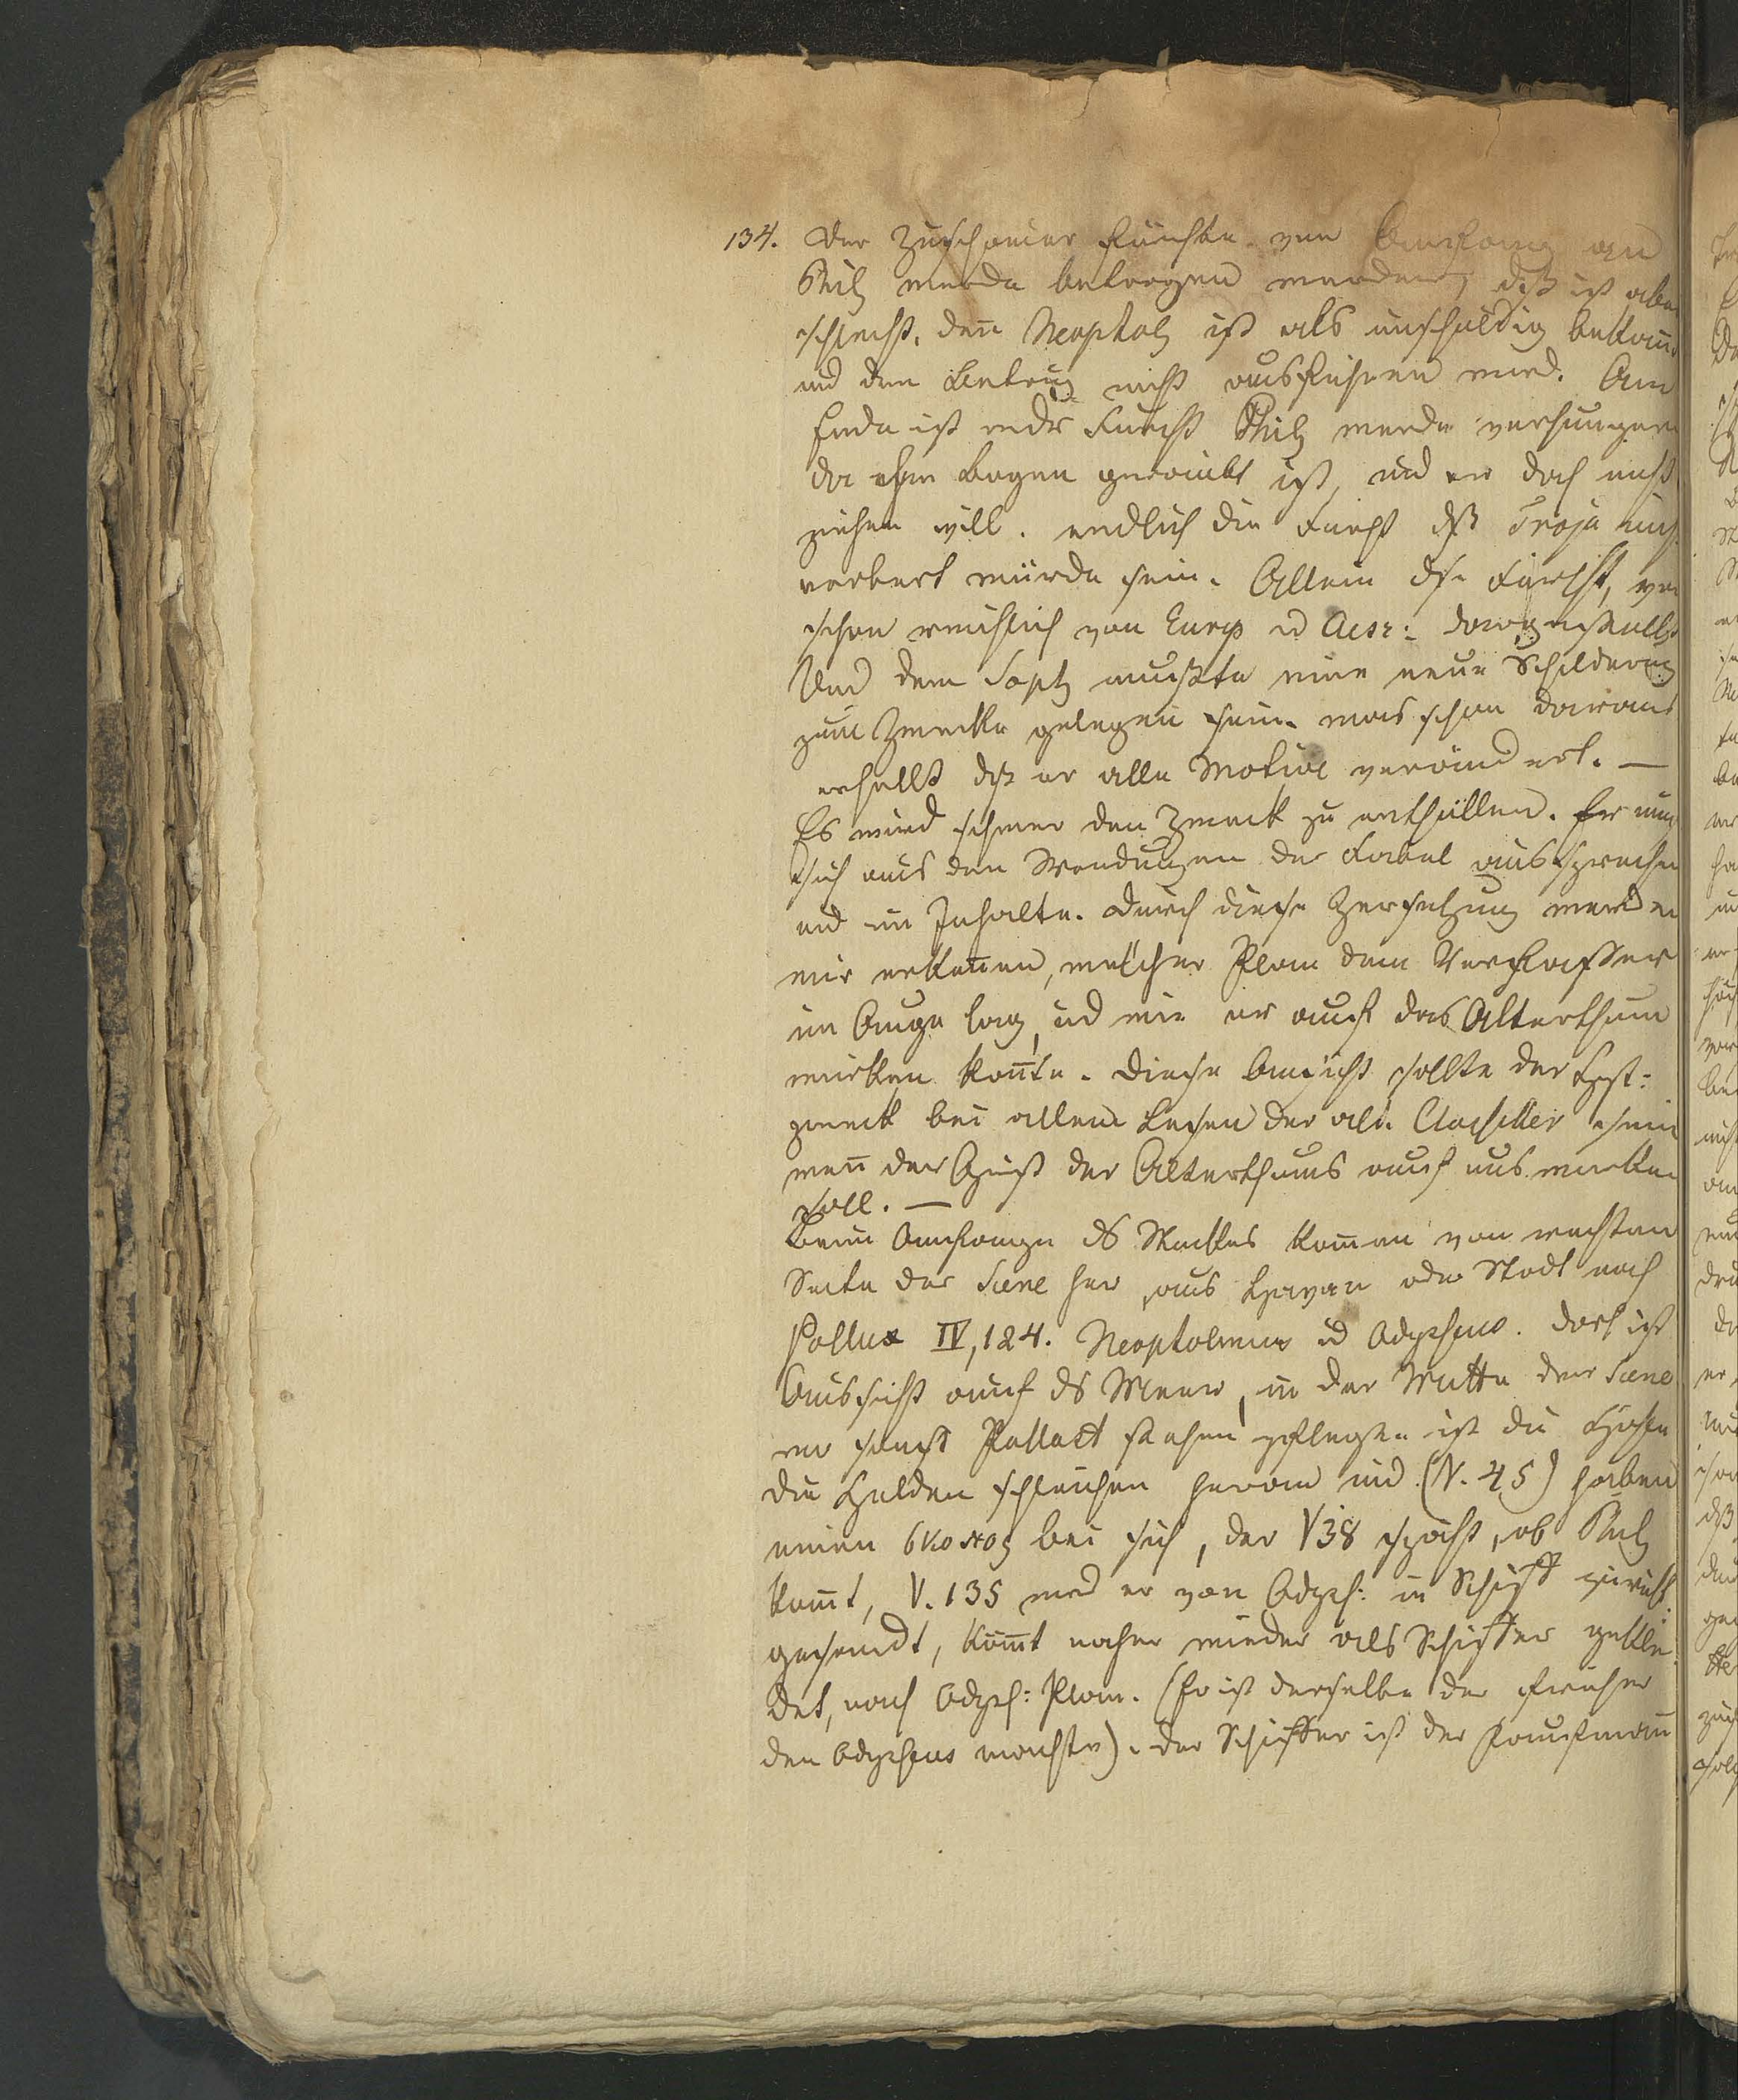 134. Der Zuschauer fürchte von Anfang an
Phil werde betrogen werden, dß ist aber
schlecht. den Neoptol ist als unschuldig bekan̄t
und den Betrug nicht ausführen wird. Am
Ende ist eeds Furcht Phil werde verhungern
da ihm Bogen geraubt ist, und er doch nicht
ziehen will. endlich die Furcht dß Troja nicht
erobert würde sein. Allein dse Furcht, war
schon reichlich von Eurip u Aesc: dargestellt
Und dem Soph mußte eine neue Schilderung
zum Zwecke gelegen sein. was schon daraus
erhellt dß er alle Motive verändert. —
Es wird schwer den Zweck zu enthüllen. Er muß
sich aus den Wendungen der Fabel aussprechen
und im Inhalte. Durch diese Zersetzung werden
wir erken̄en, welcher Plan dem Verfasser
im Auge lag, und wie er auf das Alterthum
wirken kon̄te. Diese Ansicht sollte der Erst-
zweck bei allem Lesen der alt. Classiker sein
wen̄ der Geist des Alterthums auf uns wirken
soll. —
Beim Anfange ds Stückes kom̄en von rechten
Seite der Scene her, aus Hafen oder Stadt nach
Pollux IV, 124. Neoptolemus ud Odysseus. Dort ist
Aussicht auf ds Meer, in der Mitte der Scene
wo sonst Pallast stehen pflegte ist die Höhle
die Helden schleichen heran und (V. 45) haben
einen σκοπος bei sich, der V38 späht, ob Phil
kom̄t, V. 135 wird er von Odyss: in Schiff zurück
gesandt, kom̄t nacher wieder als Schiffer geklei-
det, nach Odyss: Plan. (Er ist derselbe der früher
den Odysseus machte). Der Schiffer ist der Kaufmann